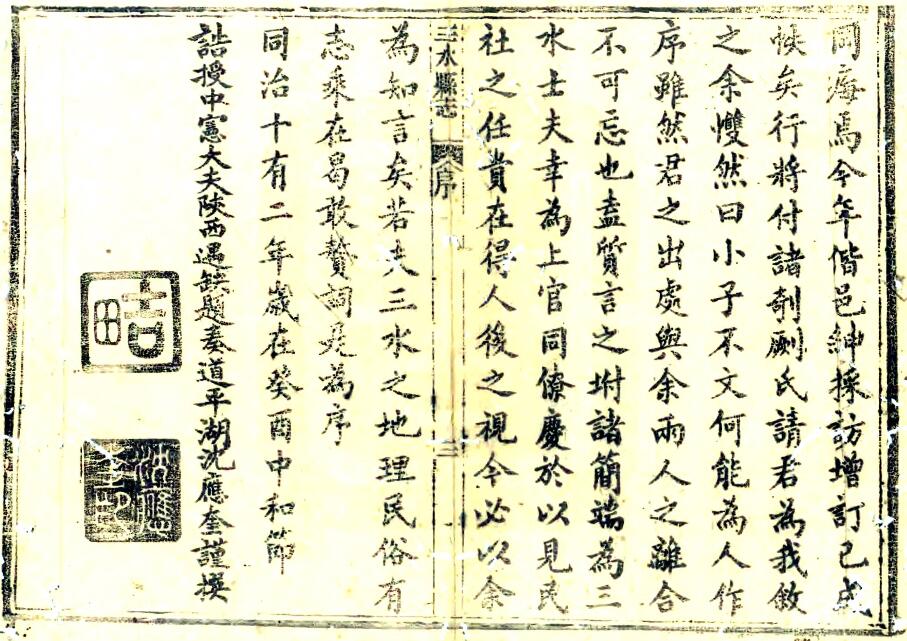 同□焉今年偕邑紳採訪增訂已成
帙矣行將付諸剞劂氏請君為我敘
之余戄然曰小子不文何能為人作
序雖然君之出處與余兩人之離合
不可忘也盍質言之坿諸簡端為三
水士夫幸為上官同僚慶於以見民
社之任貴在得人後之視今必以余
三水縣志 序 三
為知言矣若夫三水之地理民俗有
志乘在曷敢贅詞是為序
同治十有二年歲在癸酉中和節
誥授中憲大夫陝西遇缺題奏道平湖沈應奎謹撰
吉田
沈應奎印